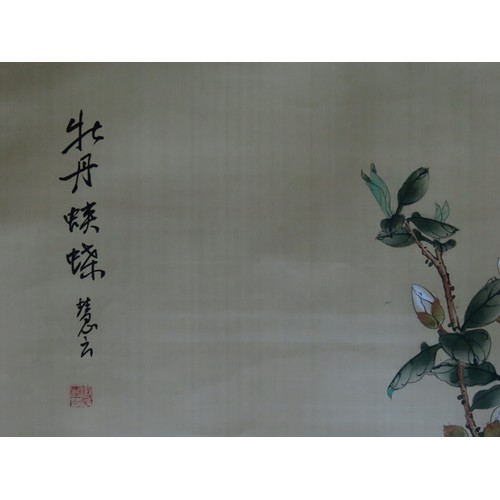 牡丹蝴蝶
慧云